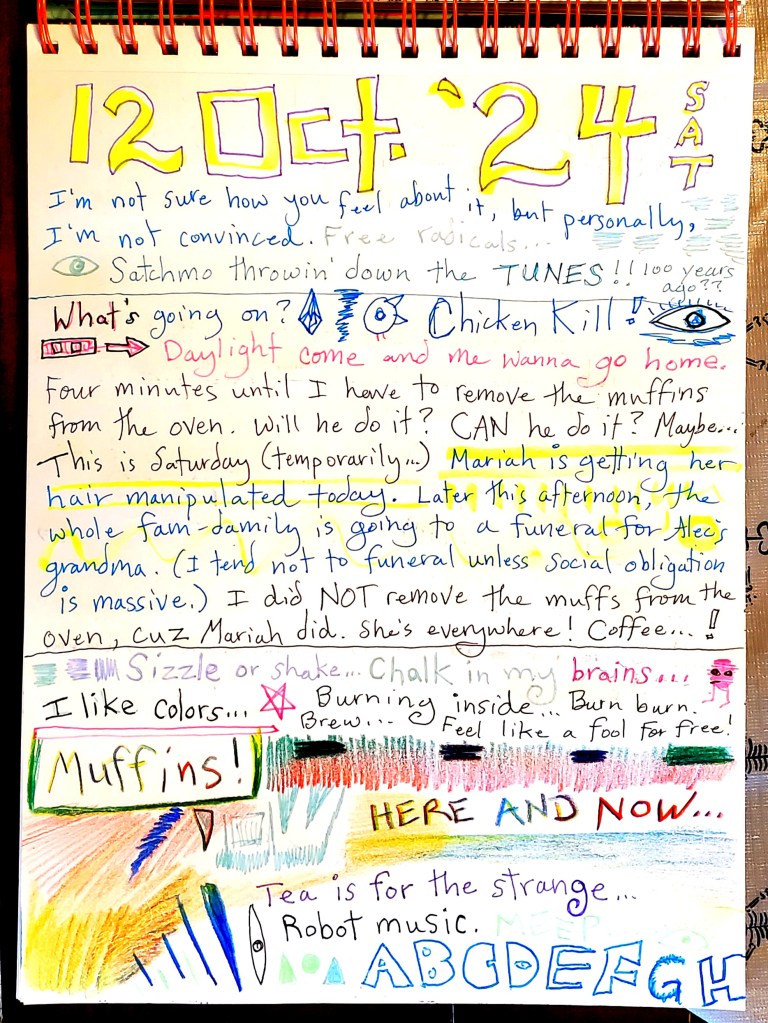 12 Oct. '24 SAT
I'm not sure how you feel about it, but personally,
I'm not convinced. Free radicals...
Satchmo throwin' down the TUNES!! 100 years
ago??
What's going on? Chicken Kill!
Daylight come and me wanna go home.
Four minutes until I have to remove the muffins
from the oven. Will he do it? CAN he do it? Maybe...
This is Saturday (temporarily...) Mariah is getting her
hair manipulated today. Later this afternoon, the
whole fam-damily is going to a funeral for Alec's
grandma. (I tend not to funeral unless social obligation
is massive.) I did NOT remove the muffs from the
oven, cuz Mariah did. She's everywhere! Coffee...!
Sizzle or shake... Chalk in my brains...
I like colors... Burning inside... Burn burn.
Brew... Feel like a fool for free!
Muffins!
HERE AND NOW...
Tea is for the strange...
Robot music. MEEP
ABCDEFGH